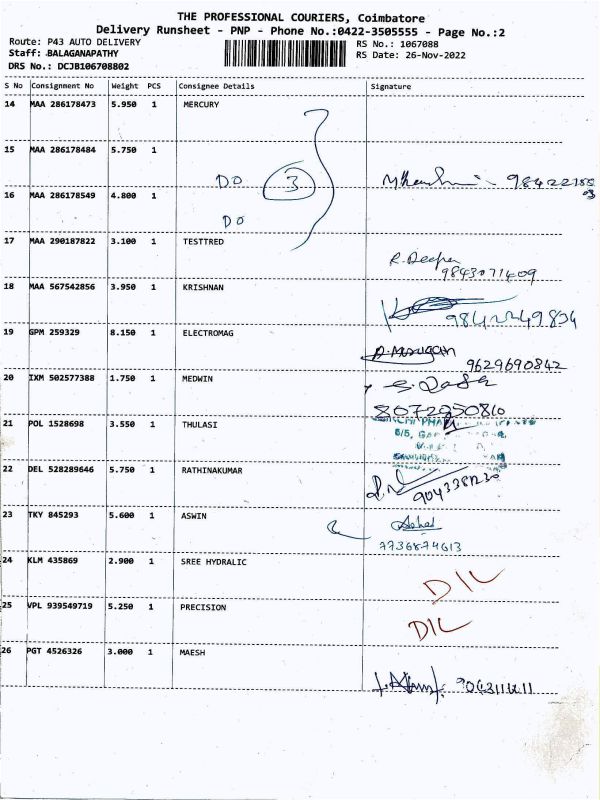 THE PROFESSIONAL COURIERS, Coimbatore
Delivery Runsheet - PNP - Phone No.:0422-3505555 - Page No.:2
Route: P43 AUTO DELIVERY
RS No.: 1067088
Staff: BALAGANAPATHY
RS Date: 26-Nov-2022
DRS No.: DCJB106708802
S No Consignment No Weight PCS Consignee Details Signature
14 MAA 286178473 5.950 1 MERCURY
15 MAA 286178484 5.750 1
DO 3
16 MAA 286178549 4.800 1
DO
17 MAA 290187822 3.100 1 TESTTRED
R. Deepa
9843071409
18 MAA 567542856 3.950 1 KRISHNAN
9842249804
19 GPM 259329 8.150 1 ELECTROMAG
P. Murugan
9629690842
20 IXM 502577388 1.750 1 MEDWIN
8072950810
21 POL 1528698 3.550 1 THULASI
22 DEL 528289646 5.750 1 RATHINAKUMAR
23 TKY 845293 5.600 1 ASWIN
7736874613
24 KLM 435869 2.900 1 SREE HYDRALIC
D/L
25 VPL 939549719 5.250 1 PRECISION
D/L
26 PGT 4526326 3.000 1 MAESH